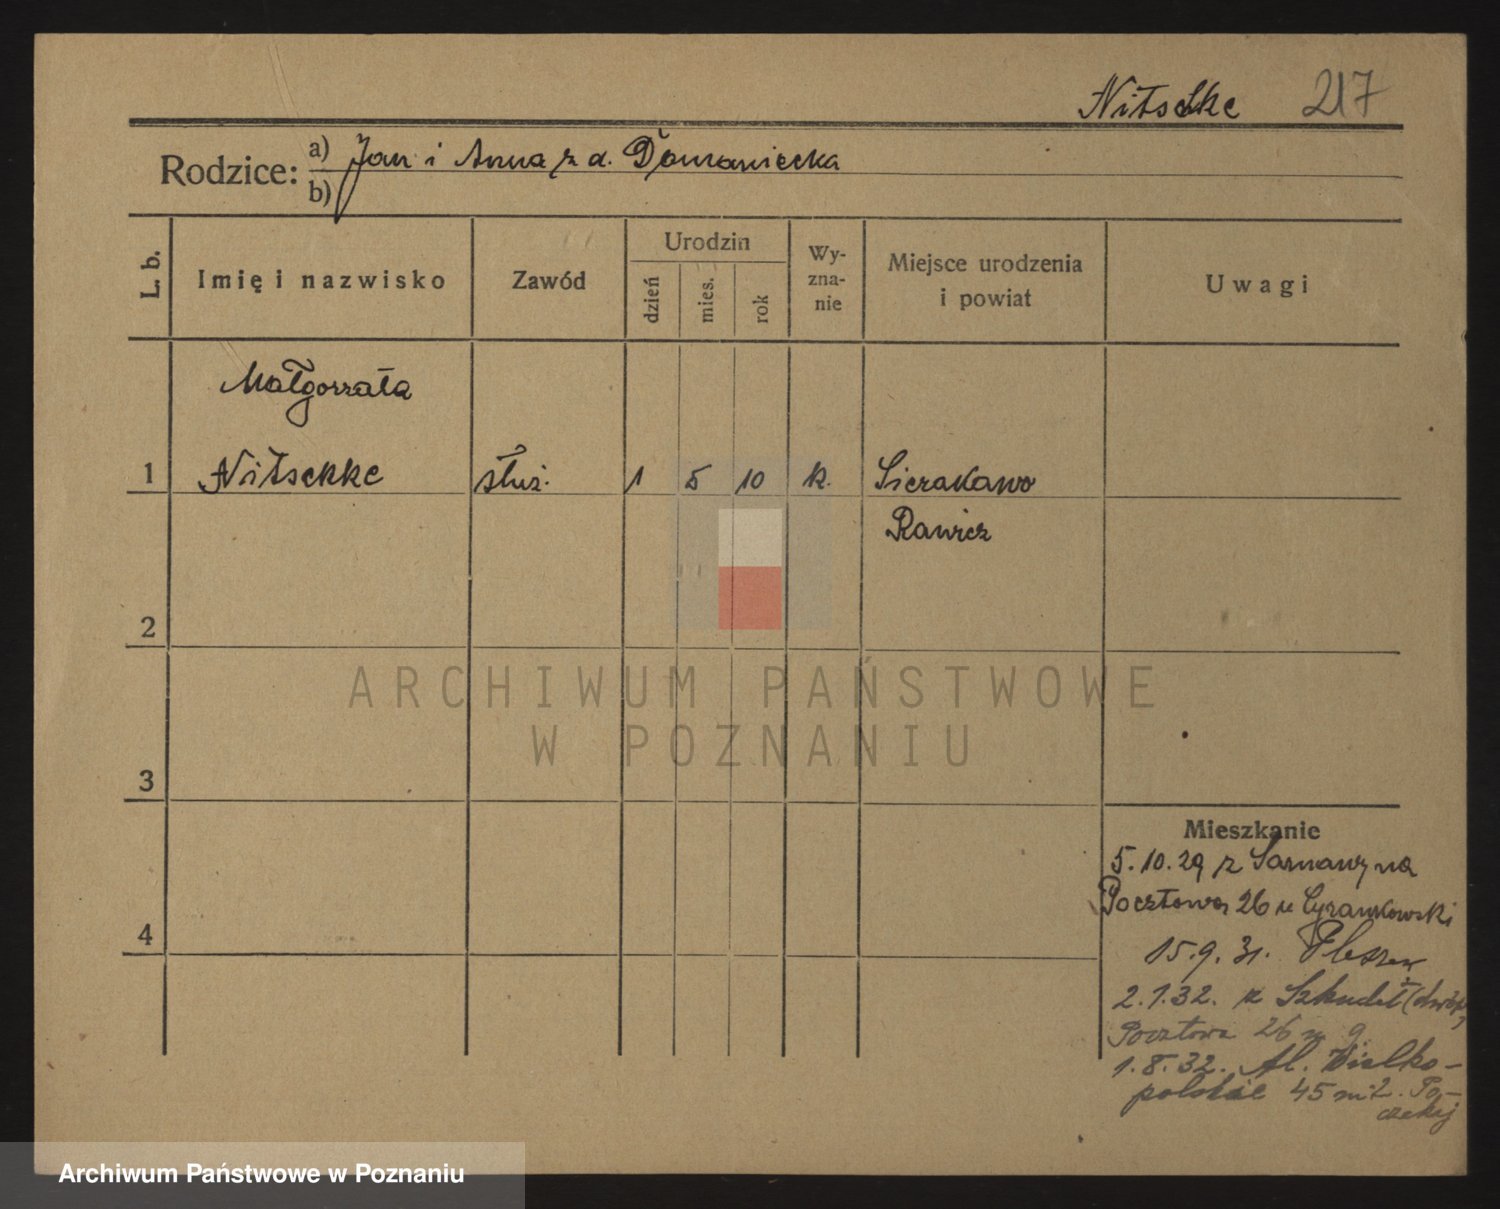 Nitschke 217
Rodzice: a) Jan i Anna z d. Domaniecka
b)
L. b.
Imię i nazwisko
Zawód
Urodzin
dzień
mies.
rok
Wy-
zna-
nie
Miejsce urodzenia
i powiat
Uwagi
Małgorzata
1 Nitschke służ. 1 5 10 k. Sierakowo
Rawicz
2
3
4
Mieszkanie
5.10.29 z Sarnowy na
Pocztowa 26 u Cyrankowski
15.9.31. Pleszew
2.1.32. z Szkudeł (dwór)
Pocztowa 26 m 9
1.8.32. Al. Wielko-
polskie 45 m 2.
ARCHIWUM PAŃSTWOWE
W POZNANIU
Archiwum Państwowe w Poznaniu